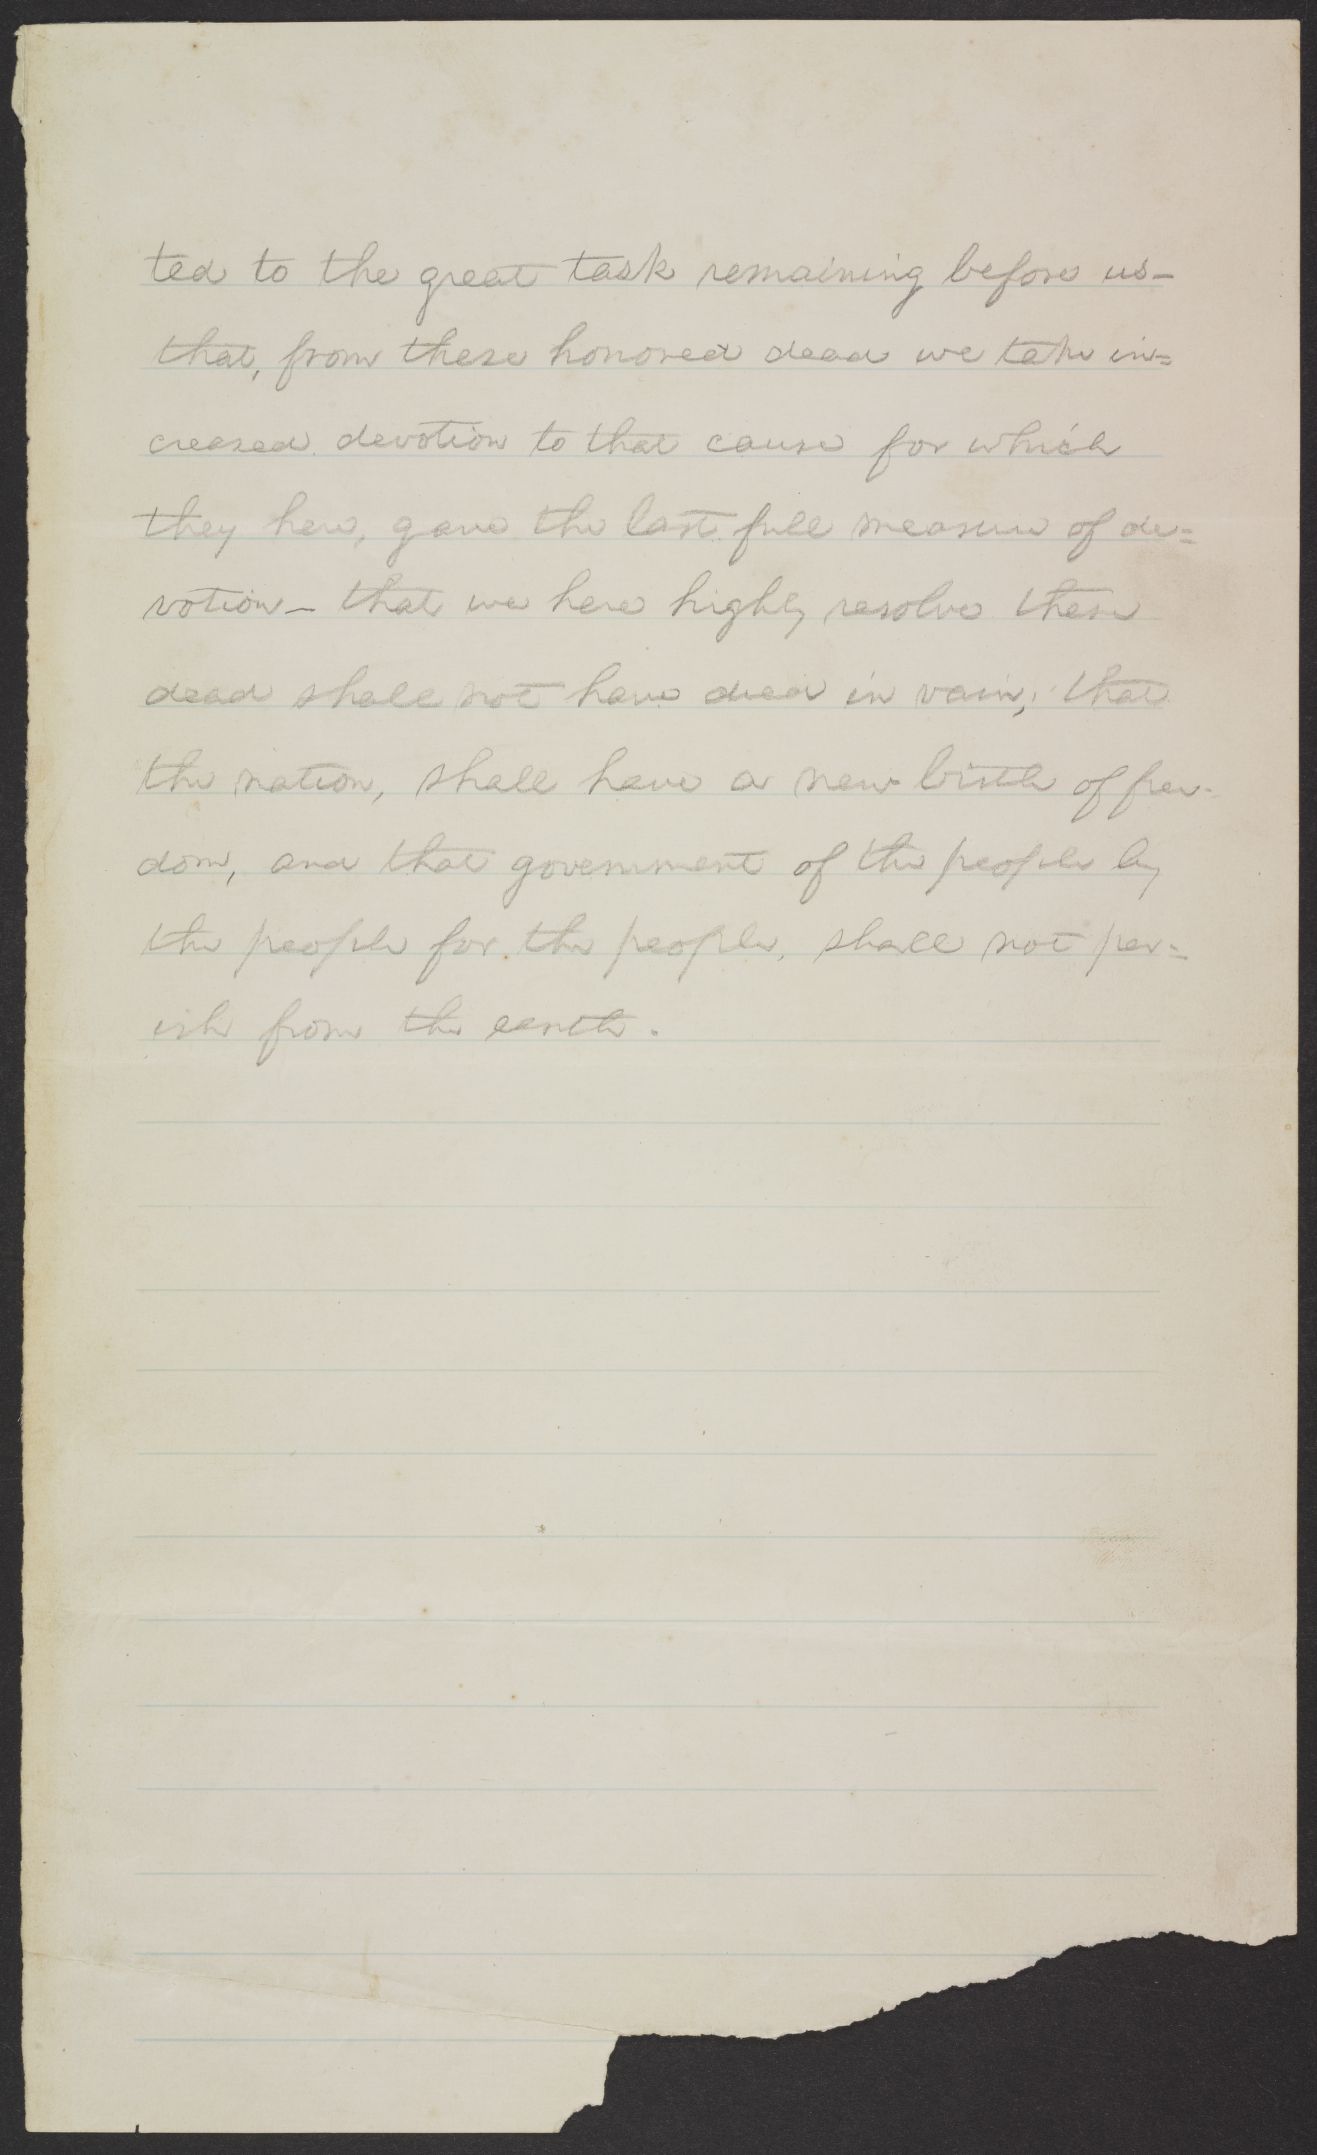 ted to the great task remaining before us—
that, from these honored dead we take in=
creased devotion to that cause for which
they here, gave the last full measure of de=
votion— that we here highly resolve these
dead shall not have died in vain; that
the nation, shall have a new birth of free-
dom, and that government of the people by
the people for the people, shall not per=
ish from the earth.